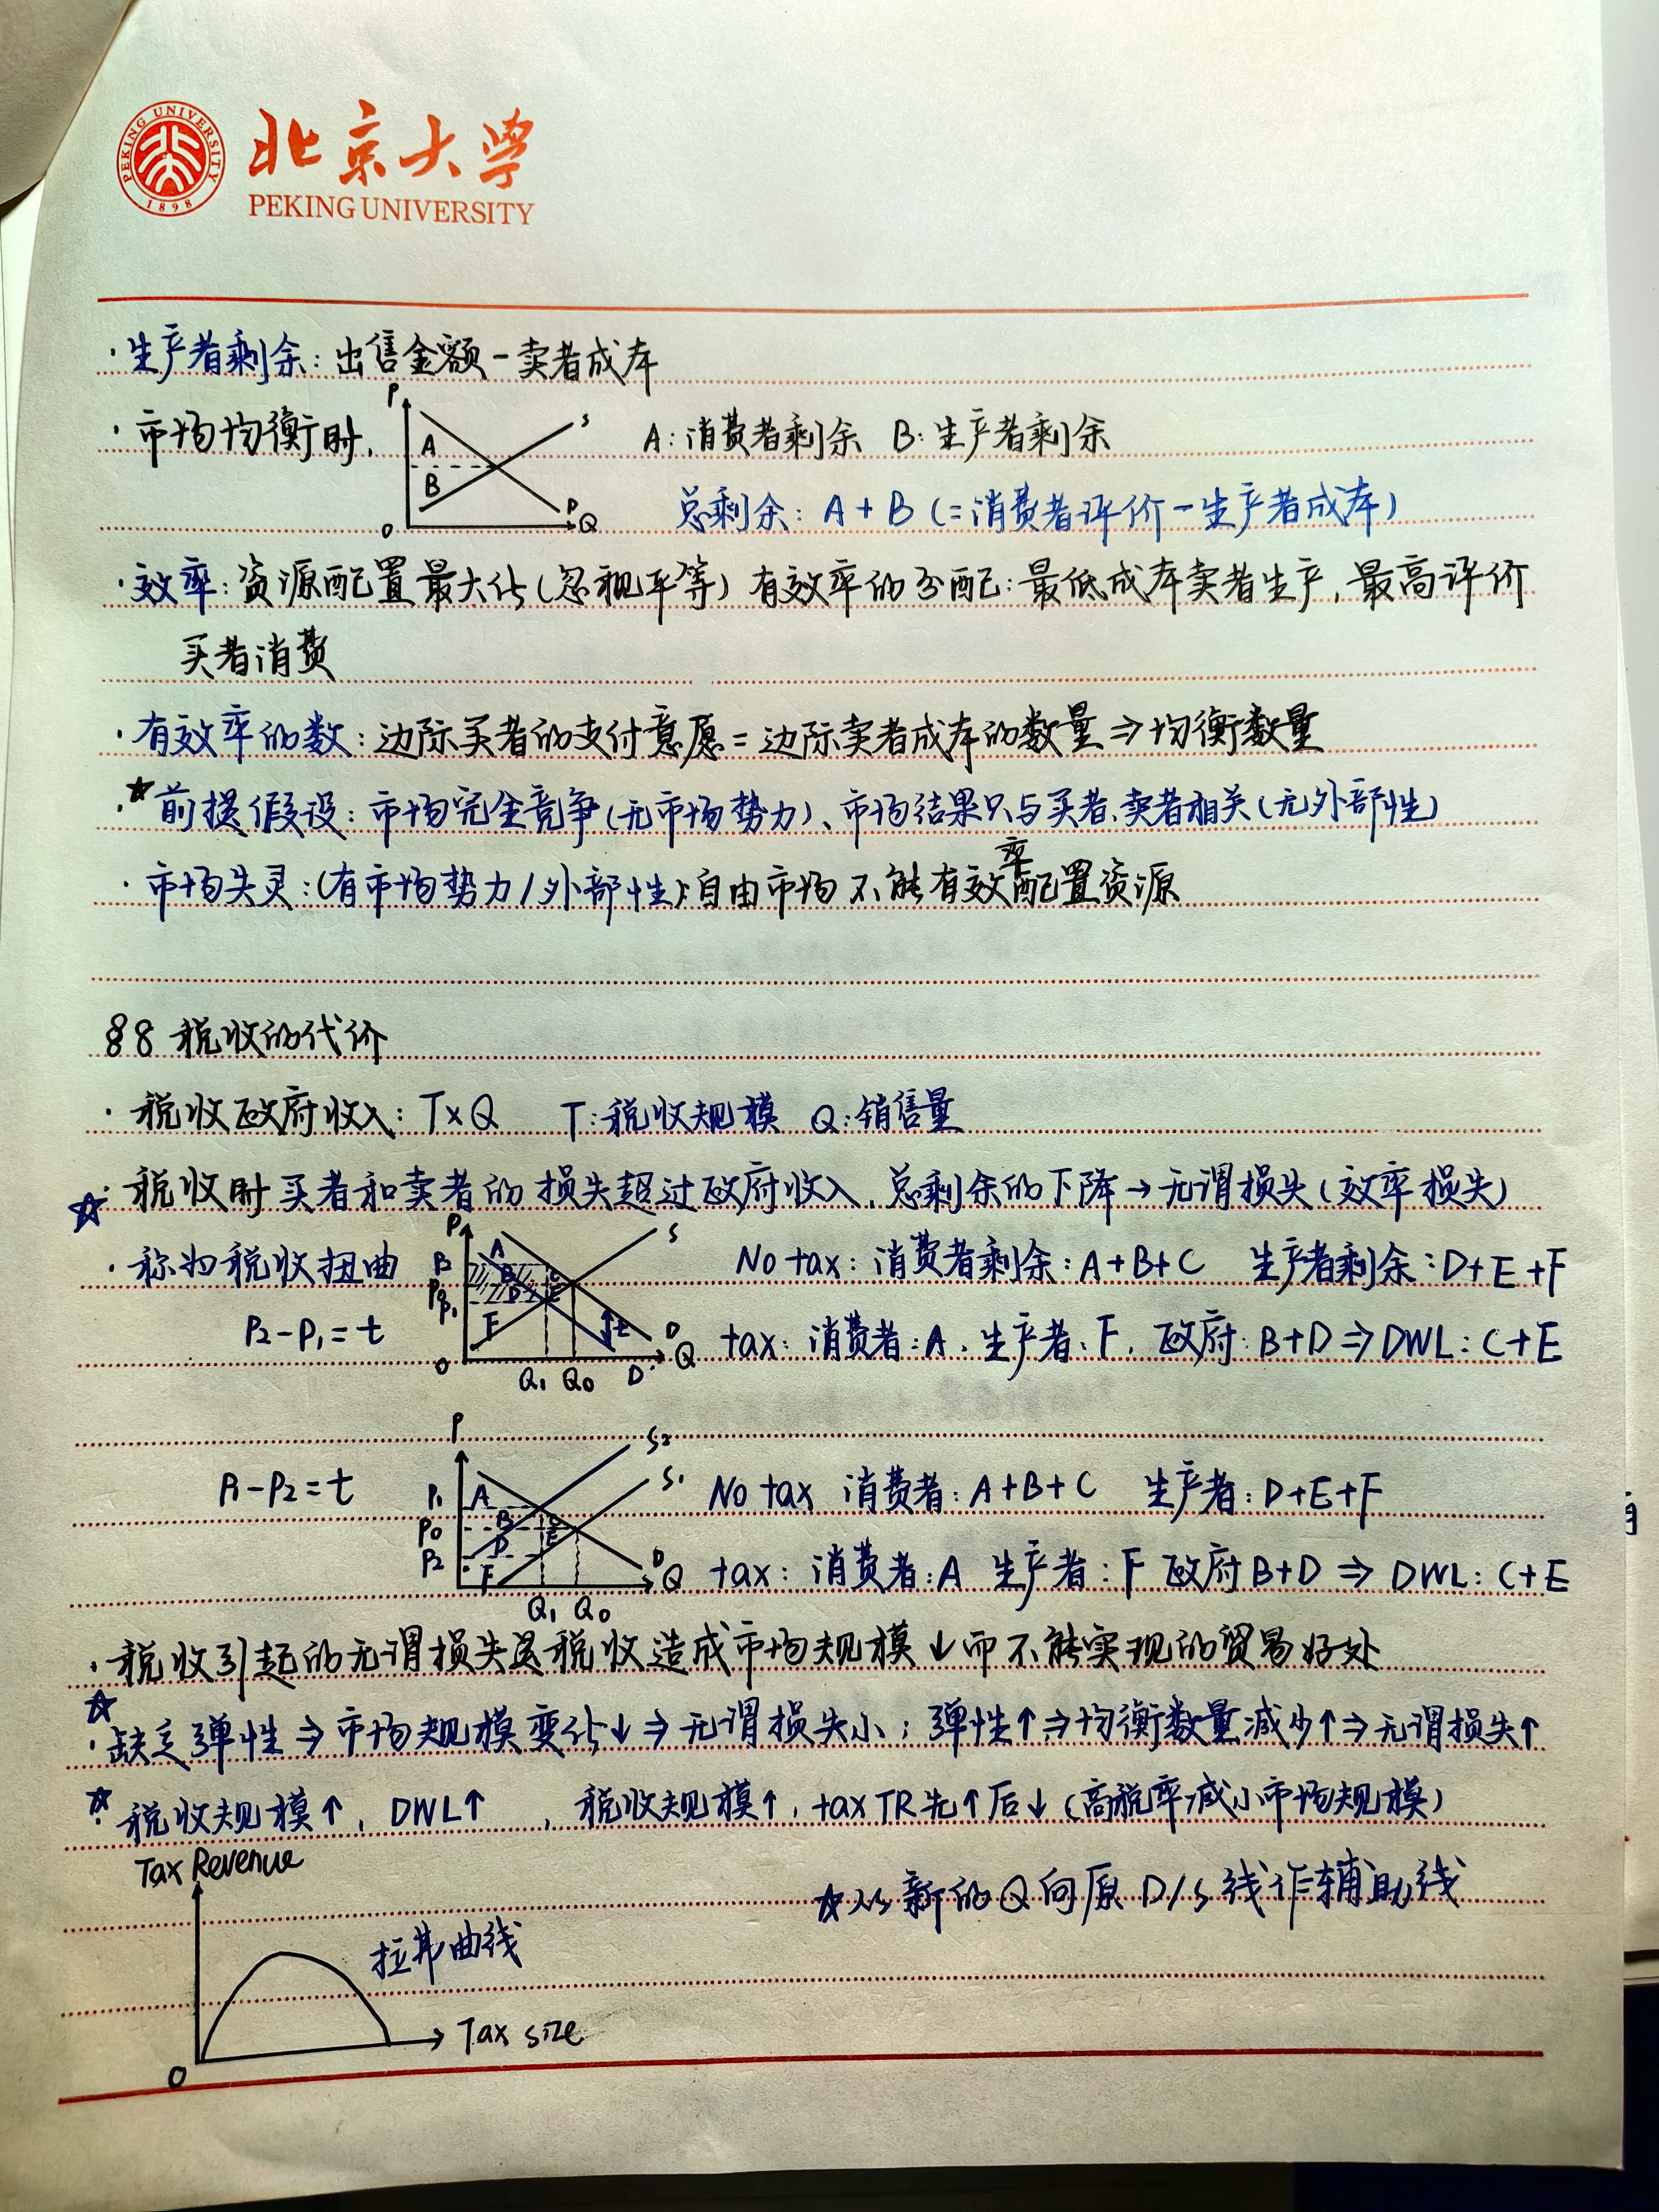 北京大学
PEKING UNIVERSITY
PEKING UNIVERSITY
1898
·生产者剩余:出售金额-卖者成本
·市场均衡时,
P
S
A
B
D
O
Q
A:消费者剩余 B:生产者剩余
总剩余: A+B (=消费者评价-生产者成本)
·效率:资源配置最大化(忽视平等) 有效率的分配:最低成本卖者生产,最高评价
买者消费
·有效率的数:边际买者的支付意愿=边际卖者成本的数量⇒均衡数量
·☆前提假设:市场完全竞争(无市场势力)、市场结果只与买者、卖者相关(无外部性)
·市场失灵:(有市场势力/外部性)自由市场不能有效率配置资源
§8 税收的代价
·税收政府收入: T×Q T:税收规模 Q:销售量
☆·税收时买者和卖者的损失超过政府收入,总剩余的下降→无谓损失(效率损失)
·称为税收扭曲
P2-P1=t
P
S
A
B
C
D
E
F
P2
P0
P1
t
D
O
Q
Q1 Q0 D'
No tax:消费者剩余:A+B+C 生产者剩余:D+E+F
tax:消费者:A,生产者:F,政府:B+D⇒DWL:C+E
P1-P2=t
P
S2
S1
P1
P0
P2
A
B
C
D
E
F
D
Q
Q1 Q0
No tax 消费者:A+B+C 生产者:D+E+F
tax:消费者:A 生产者:F 政府B+D⇒DWL:C+E
·税收引起的无谓损失是税收造成市场规模↓而不能实现的贸易好处
☆·缺乏弹性⇒市场规模变化↓⇒无谓损失小;弹性↑⇒均衡数量减少↑⇒无谓损失↑
☆·税收规模↑,DWL↑,税收规模↑,tax TR先↑后↓(高税率减小市场规模)
Tax Revenue
☆从新的Q向原D/S线作辅助线
拉弗曲线
Tax size
O